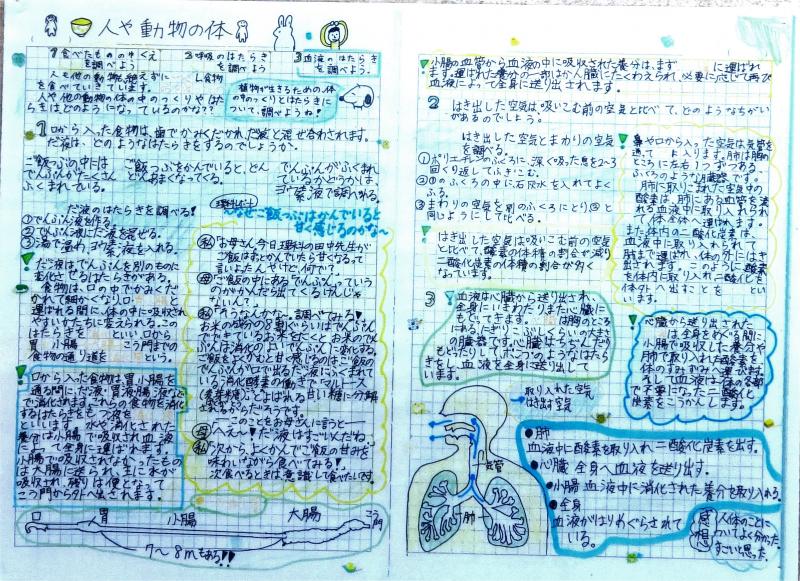 人や動物の体
1食べたもののゆくえ
を調べよう
2呼吸のはたらき
を調べよう
3血液のはたらき
を調べよう
人も他の動物も絶えずに し食物
を食べていきています。
人や他の動物の体の中のつくりやはた
らきはどのようになっているのかな??
植物が生きるための体
のつくりとはたらきに
ついて、調べよね!
1 口から入った食物は、歯でかみくだかれ、だ液と混ぜ合わされます。
だ液は、どのようなはたらきをするのでしょうか。
ご飯つぶの中には
でんぷんがたくさん
ふくまれている。
ご飯つぶをかんでいると、どん
どんあまくなってくる。
でんぷんがふくまれ
ているかどうかは、
ヨウ素液で調べれる。
だ液のはたらきを調べる!
①でんぷん液を作る。
②でんぷん液にだ液を混ぜる。
③湯で温め、ヨウ素液も入れる。
だ液はでんぷんを別のものに
変化させるはたらきがある。
食物は、口の中でかみくだ
かれて細かくなり、口 と
運ばれる間に、体の中に吸収され
やすいかたちに変えられる。この
はたらきを といい、口から
胃 小腸 こう門までの
食物の通り道を という。
口から入った食物は、胃、小腸を
通る間に、だ液、胃液、腸液など
で消化されます。これらの食物を消化
するはたらきをもつ液を
といいます。 水や消化された
養分は、小腸で吸収され血液に
よって全身に運ばれます。
小腸で吸収されなかったもの
は大腸に送られ、さらに水分が
吸収され、残りは便となって
こう門から外へ出されます。
理科レポート
〜なぜご飯つぶはかんでいると
甘く感じるのかな〜
私「お母さん今日理科の田中先生が
ご飯はずっとかんでいたら甘くなるって
言いよたんやけど、何で?」
母「ご飯の中にあるでんぷんっていう
のがかんだら出てくるけんじゃ
ないん?」
私「そうなんかな〜。調べてみる♪
お米の成分の8割ぐらいはでんぷん。
甘くなっているお米をにくとお米のでん
ぷんは消化の よいでんぷんに変化する。
ご飯をよくかむと甘く感じるのは、ご飯の
でんぷんが口で出るだ液にふくまれて
いる消化酵素の働きでマルトース
(麦芽糖)とよばれる甘い糖に分解さ
れるからだろうです。
---このことをお母さんに言うと---
母「へえ〜ん!だ液はすごいんだね。
私「次から、よくかんでご飯の甘みを
味わいながら食べてみる!
次食べるときは、意識して食べたいです。
口 胃 小腸 大腸 こう門
7〜8mもある!!
小腸の血管から血液の中に吸収された養分は、まず に運ばれ
ます。運ばれた養分の一部はかん臓にたくわえられ、必要に応じて再び
血液によって全身に送り出されます。
2 はき出した空気は吸いこむ前の空気と比べて、どのようなちがい
があるのでしょう。
はき出した空気とまわりの空気
を調べる。
①ポリエチレンのふくろに、深く吸った息を2〜3
回くり返してふきこむ。
②①のふくろの中に、石灰水を入れてよく
ふる。
③まわりの空気を別のふくろにとり②と
同じようにして比べる。
はき出した空気は吸いこむ前の空気
と比べて、酸素の体積の割合が減り
二酸化炭素の体積の割合が多く
なっています。
鼻や口から入った空気は気管を
通って 入ります。肺は胸の
ところに左右1つずつある
ふくろのような臓器です。
肺に取りこまれた空気中の
酸素は、肺にある血管を流
れる血液中に取り入れられ
て、全身へ運ばれます。
また体内の二酸化炭素は、
血液中に取り入れられて
肺まで運ばれ、体の外にはき
出されます。このように、酸素
を体内に取り入れ二酸化を
体外へ出すことを とい
います。
3 血液は心臓から送り出され、
全身にいきわたりまた心臓に
もどってきます。 は胸のところ
にある、にぎりこぶしくらいの大きさ
の臓器です。心臓はちぢんだり
もどったりして、ポンプのようなはたら
きをし、血液を全身に送り出して
います。
心臓から送り出された
は、全身をめぐる間に、
小腸で吸収した養分や
肺で取り入れた酸素を
体のすみずみへ運びます。
そして血液は、体の各部
で不要になった二酸化
炭素をこうかんします。
取り入れた空気
はき出す空気
気管
肺
●肺
血液中に酸素を取り入れ二酸化炭素を出す。
●心臓 全身へ血液を送り出す。
●小腸 血液中に消化された養分を取り入れる。
●全身
血液がはりめぐらされて
いる。
感想
人体のことに
ついてよく分かった。
すごいと思った。